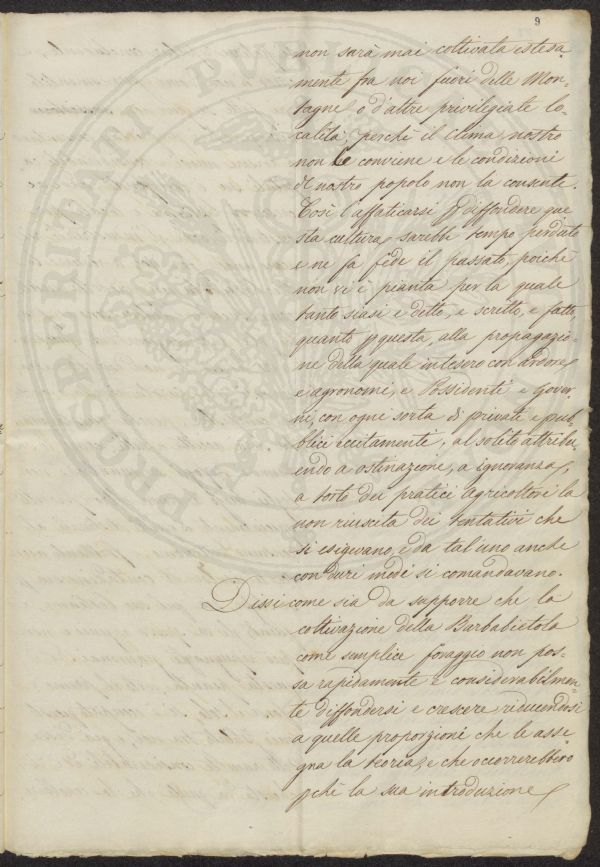 9
non sarà mai coltivata estesa
mente fra noi fuori delle Mon-
tagne o d'altre privilegiate lo-
calità, perchè il clima nostro
non le conviene e le condizioni
del nostro popolo non la consente.
Così l'affaticarsi p diffondere que
sta cultura sarebbe tempo perduto
e ne fa fede il passato, poichè
non vi è pianta per la quale
tanto siasi e detto, e scritto, e fatto,
quanto p questa, alla propagazio-
ne della quale intesero con ardore
e agronomi, e Possidenti e Gover-
ni, con ogni sorta di privati e pub-
blici eccitamenti, al solito attribu-
endo a ostinazione, a ignoranza,
a torto dei pratici agricoltori la
non riuscita dei tentativi che
si esigevano, e da tal'uno anche
con duri modi si comandavano.
Dissi come sia da supporre che la
coltivazione della Barbabietola
come semplice foraggio non pos-
sa rapidamente e considerabilmen-
te diffondersi e crescere riducendosi
a quelle proporzioni che le asse-
gna la teoria, e che occorrerebbero
pchè la sua introduzione
PROSPERITATI PUBL